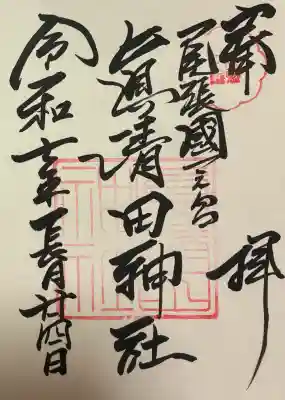 奉拝
尾張國一之宮
真清田神社
令和七年長月廿四日